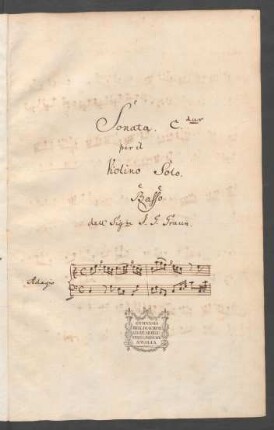 Sonata. C. dur
per il
Violino Solo.
è
Basso
dell Sigre J. G. Graun.
Adagio